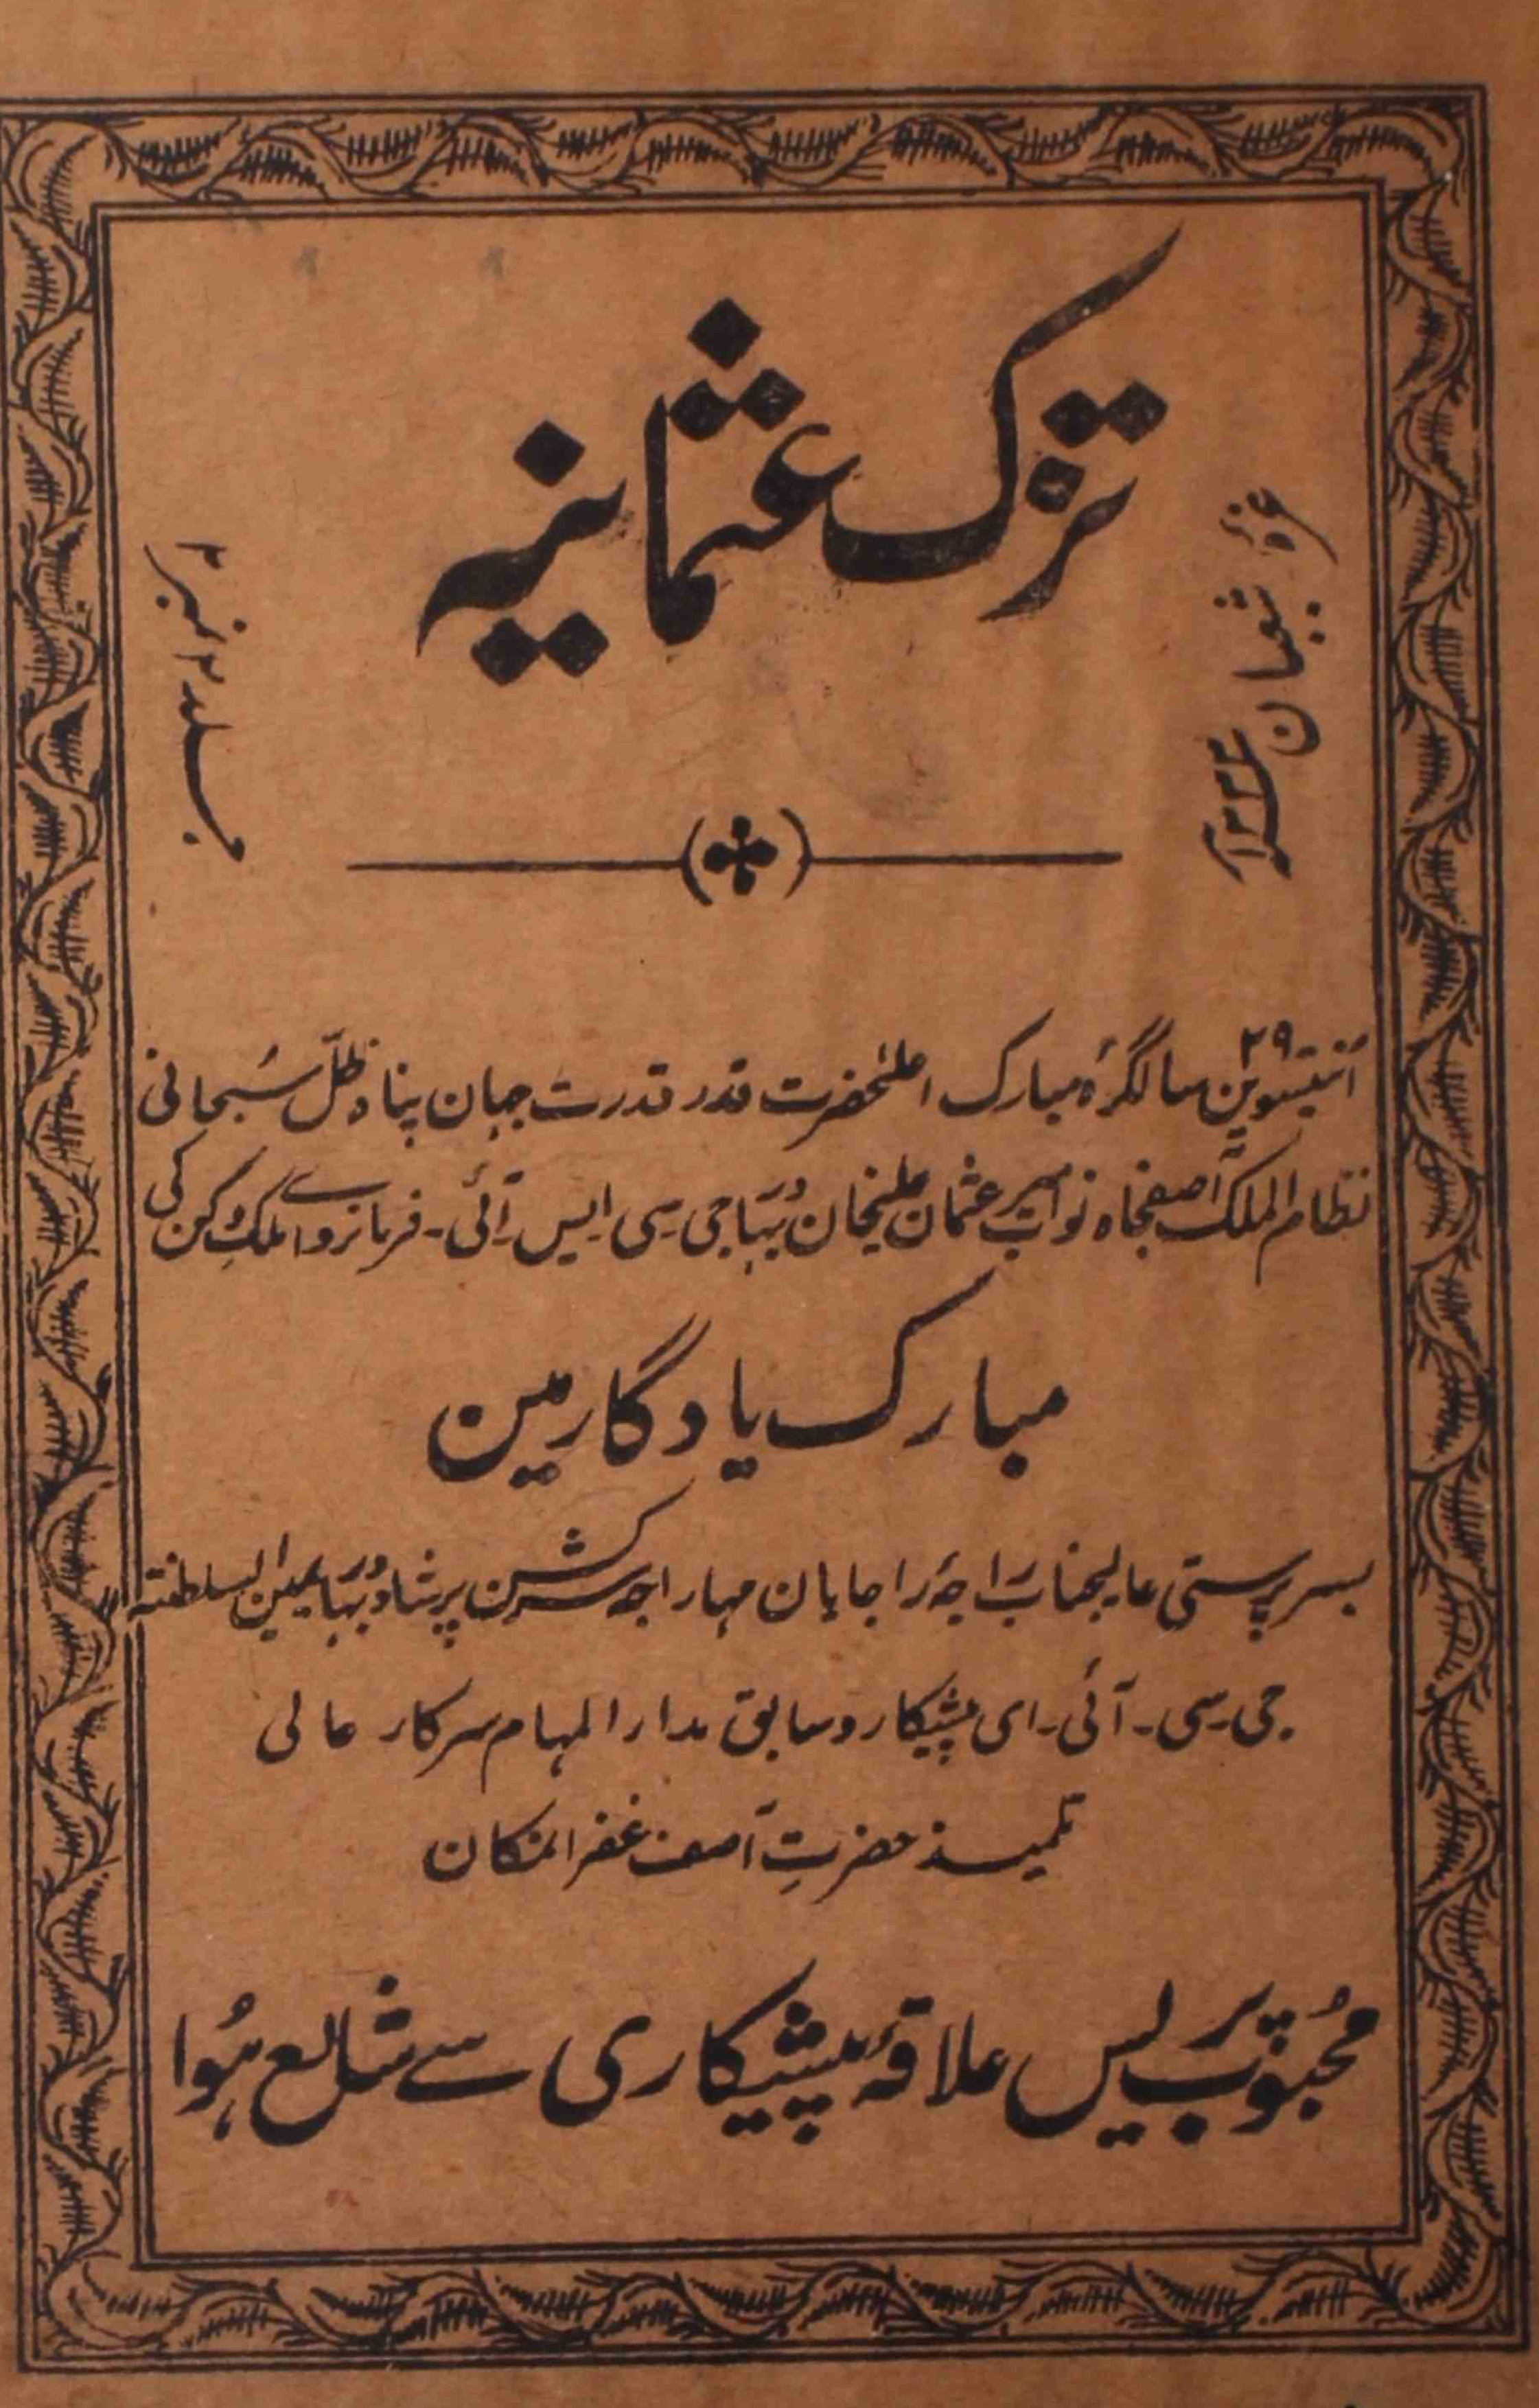 تزک عثمانیہ
غرہ شعبان
جلد ۲ نمبر ۲
انتیسوین ۲۹ سالگرۂ مبارک اعلیٰحضرت قدر قدرت جہان پناہ ظلّ سُبحانی
نظام الملک آصفجاہ نواب میر عثمان علیخان بہادر جی سی ایس آئی۔ فرمانروائے ملکِ دکن کی
مبارک یادگار مین
بسرپرستی عالیجناب راجۂ راجایان مہاراجہ سرکشن پرشاد بہادر یمین السلطنتہ
جی۔سی۔آئی۔ای پیشکار و سابق مدارالمہام سرکار عالی
تلمیذ حضرتِ آصف غفرالمکان
محبُوب پریس علاقۂ پیشکاری سے شایع ہُوا